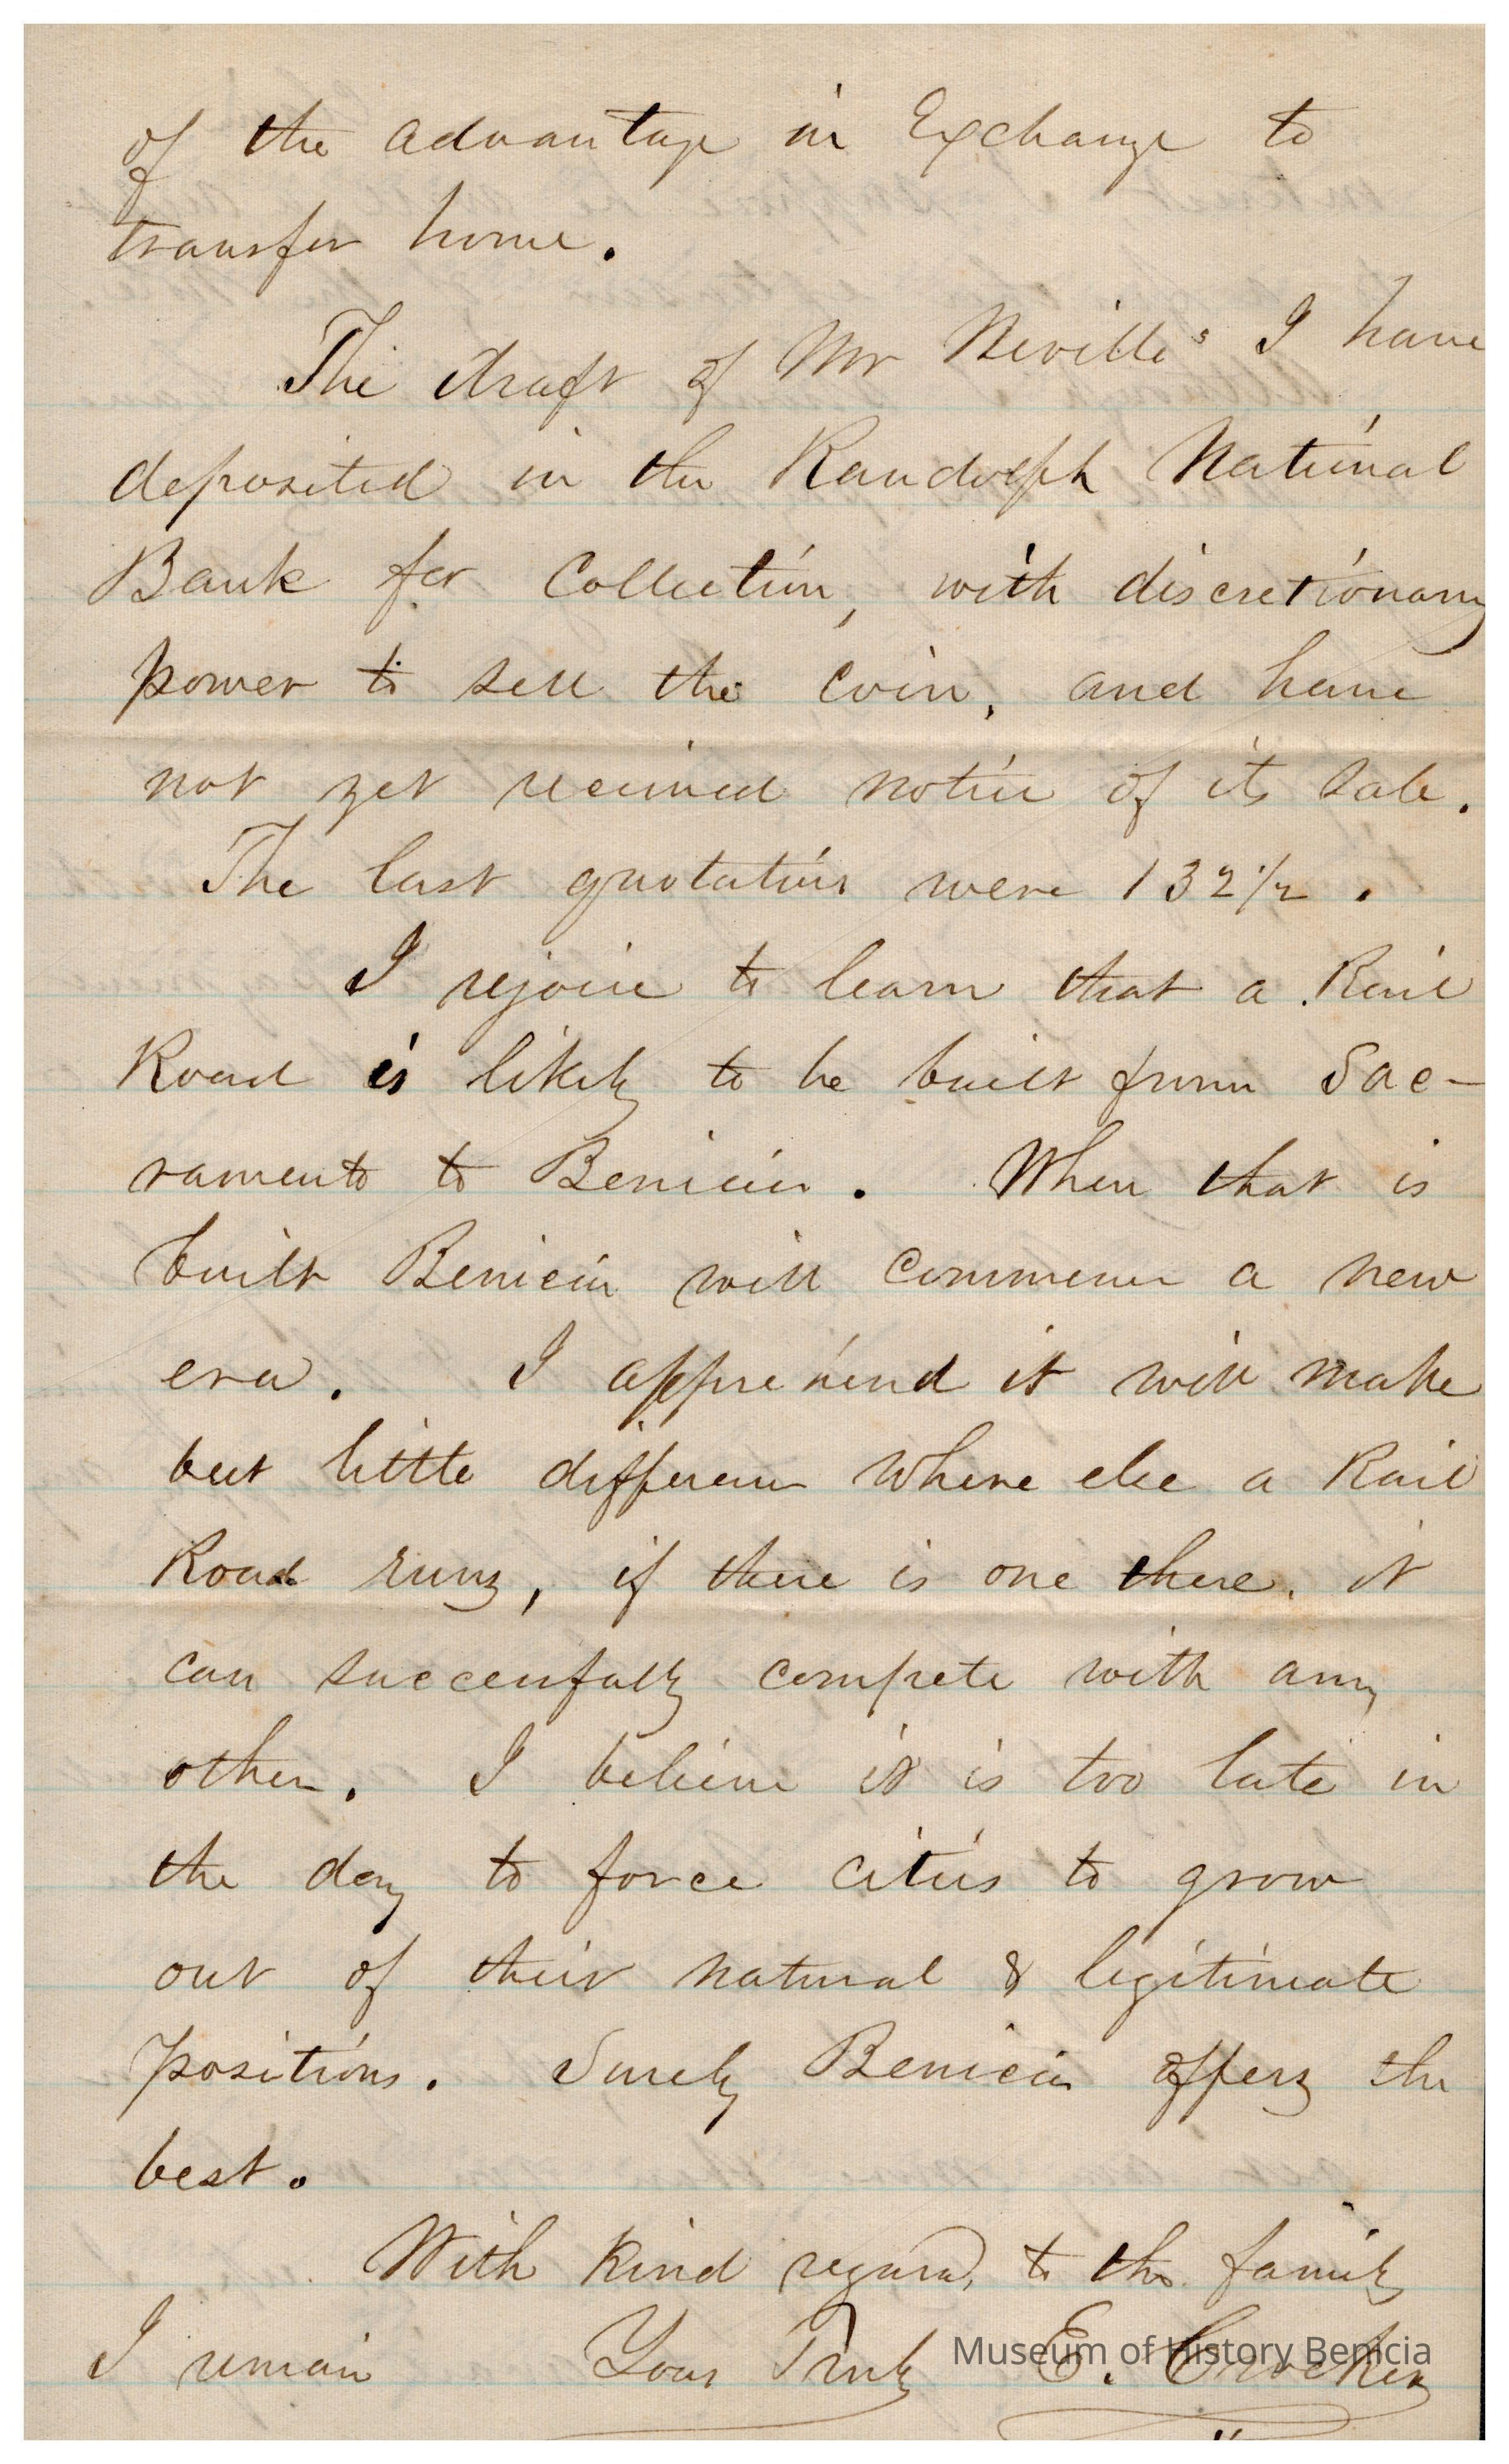 of the advantage in Exchange to
transfer home.
The draft of Mr Neville's I have
deposited in the Randolph National
Bank for Collection, with discretionary
power to sell the coin, and have
not yet received notice of its sale.
The last quotations were 132 1/2.
I rejoice to learn that a Rail
Road is likely to be built from Sac-
ramento to Benicia. When that is
built Benicia will commence a new
era. I apprehend it will make
but little difference where else a Rail
Road runs, if there is one there, it
can successfully compete with any
other. I believe it is too late in
the day to force cities to grow
out of their natural & legitimate
positions. Surely Benicia offers the
best.
With kind regards to the family
I remain Yours Truly E. Crocker
Museum of History Benicia